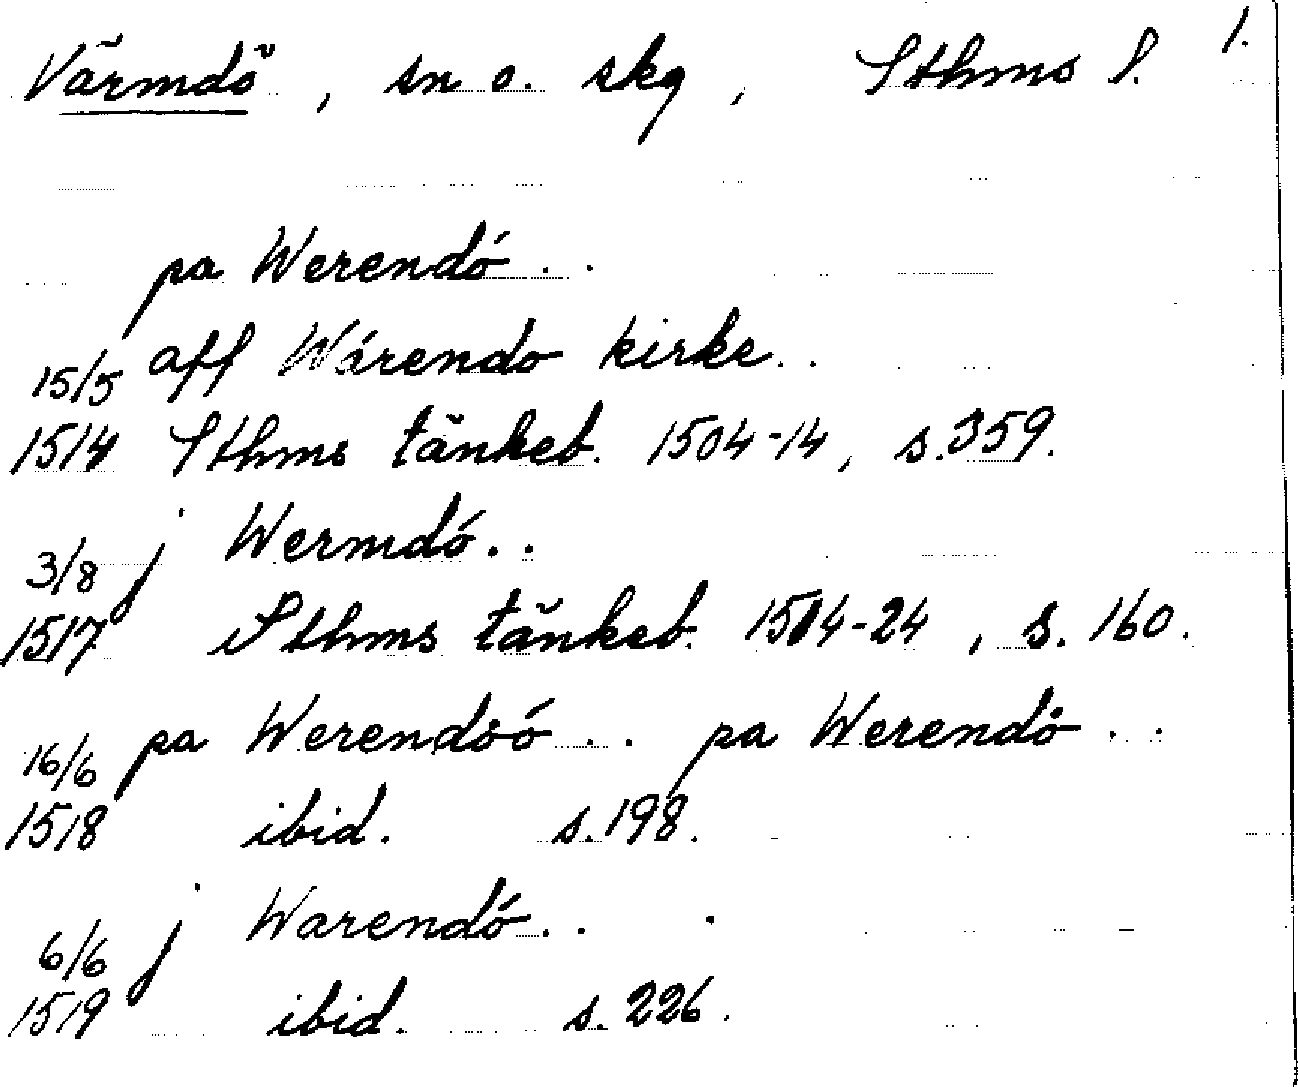 Värmdö, sn o. skg, Sthms l. 1.
pa Werendó..
15/5 aff Wárendo kirke..
1514 Sthms tänkeb. 1504-14, s.359.
3/8 j Wermdó..
1517 Sthms tänkeb. 1514-24, s. 160.
16/6 pa Werendöó.. pa Werendö..
1518 ibid. s.198.
6/6 j Warendó..
1519 ibid. s.226.